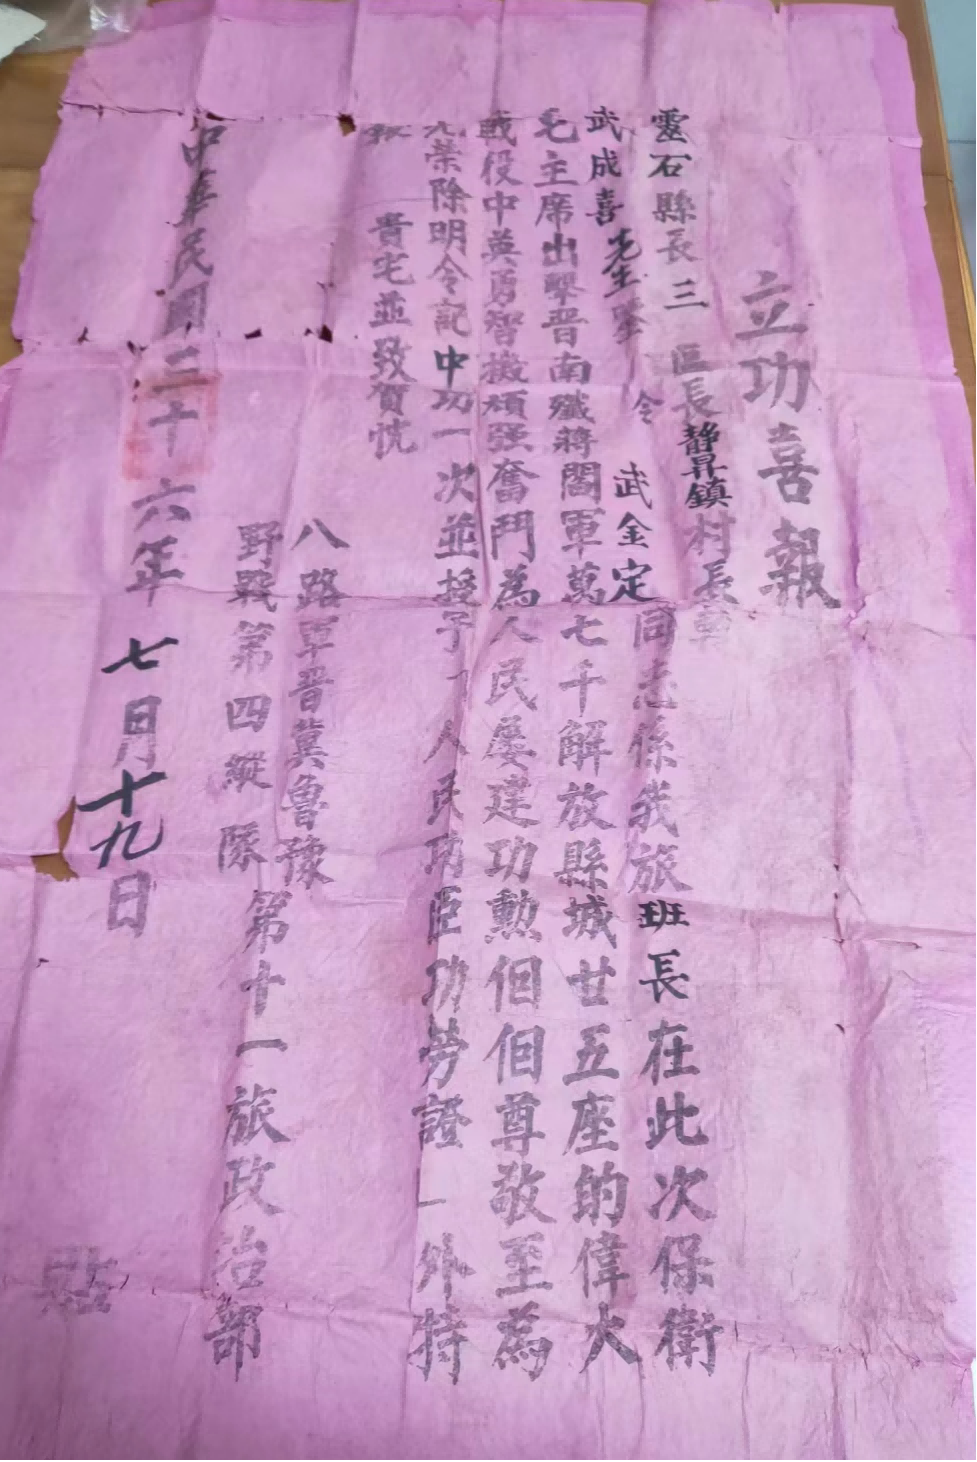 立功喜報
靈石縣長三區長靜昇鎮村長
武成喜先生鑒令武金定同志係我旅班長在此次保衛
毛主席出擊晋南殲蔣閻軍萬七千解放縣城廿五座的偉大
戰役中英勇智機頑强奮鬥為人民屡建功勳佪佪尊敬至為
光榮除明令記中功一次並授予人民功臣功勞證一外特
報貴宅並致賀忱
八路軍晋冀魯豫
野戰第四縱隊第十一旅政治部
中華民國三十六年七月十九日